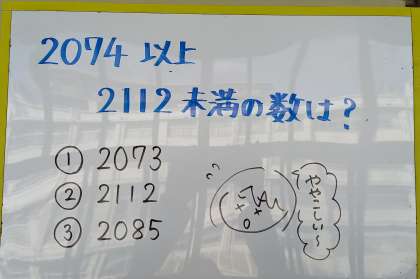 2074 以上
2112 未満の数は?
① 2073
② 2112
③ 2085
ややこしい〜